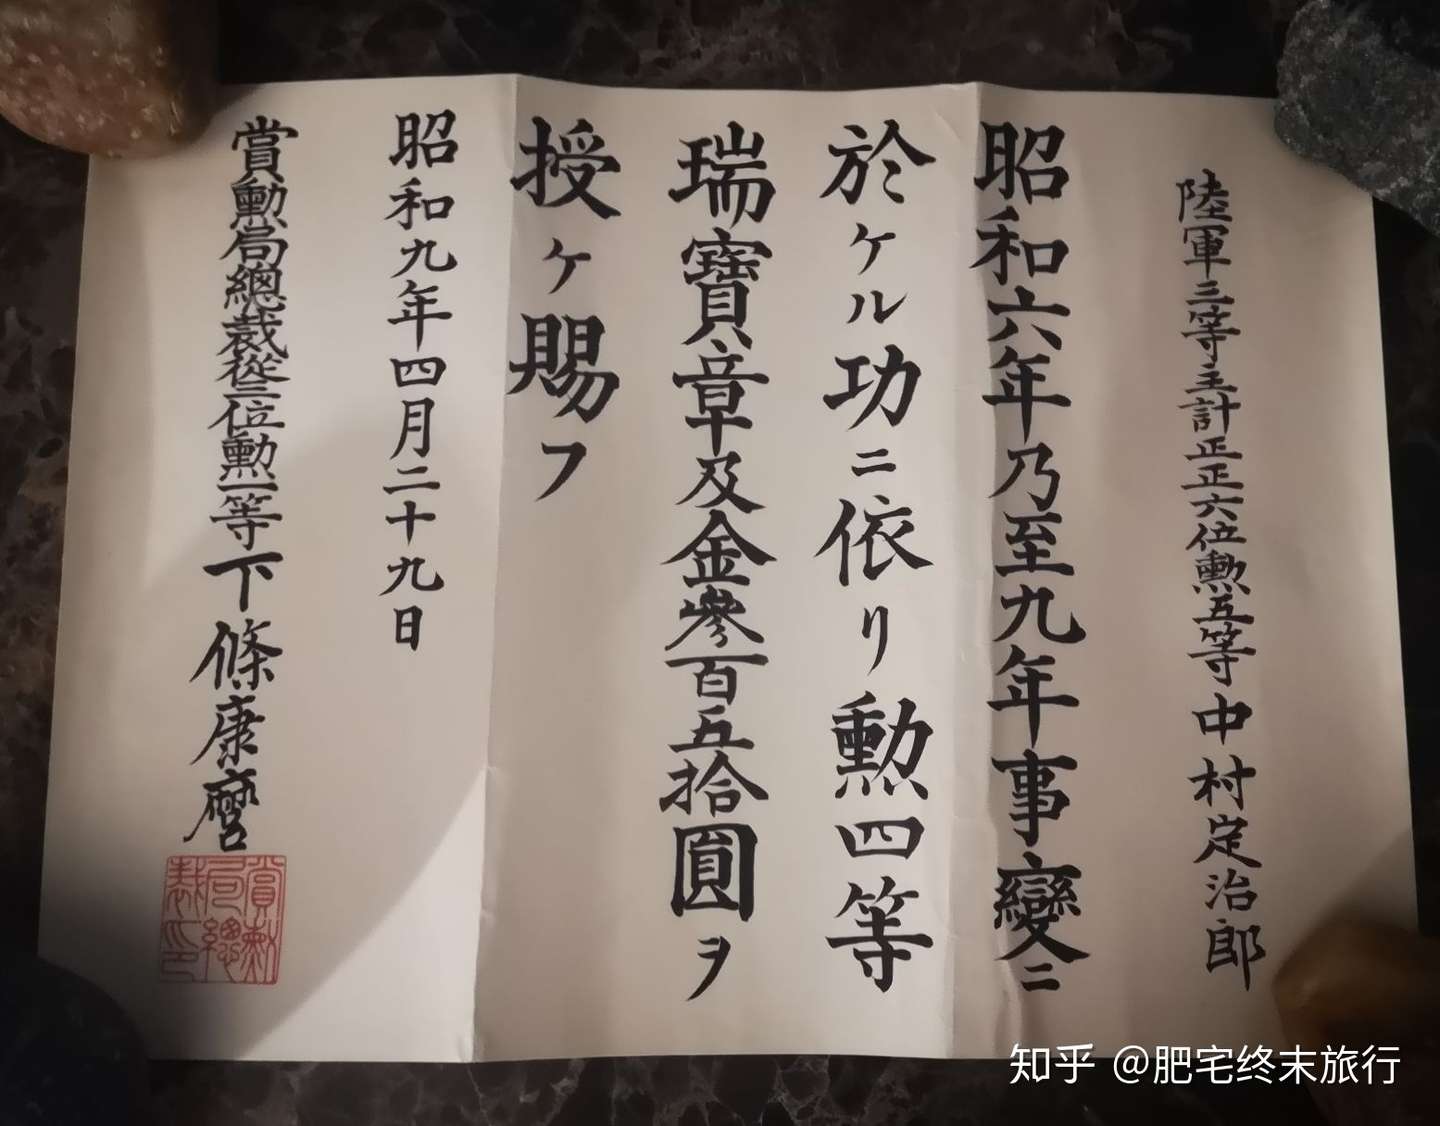 陸軍三等主計正正六位勲五等中村定治郎
昭和六年乃至九年事變ニ
於ケル功ニ依リ勲四等
瑞寶章及金參百五拾圓ヲ
授ケ賜フ
昭和九年四月二十九日
賞勲局總裁從三位勲一等下條康麿
賞勲
局總
裁印
知乎 @肥宅终末旅行